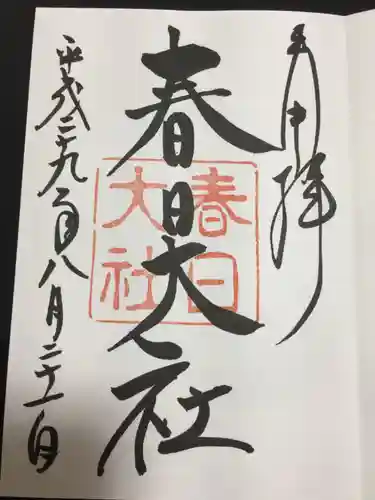 奉拝
春日大社
春日
大社
平成二十九年八月二十一日